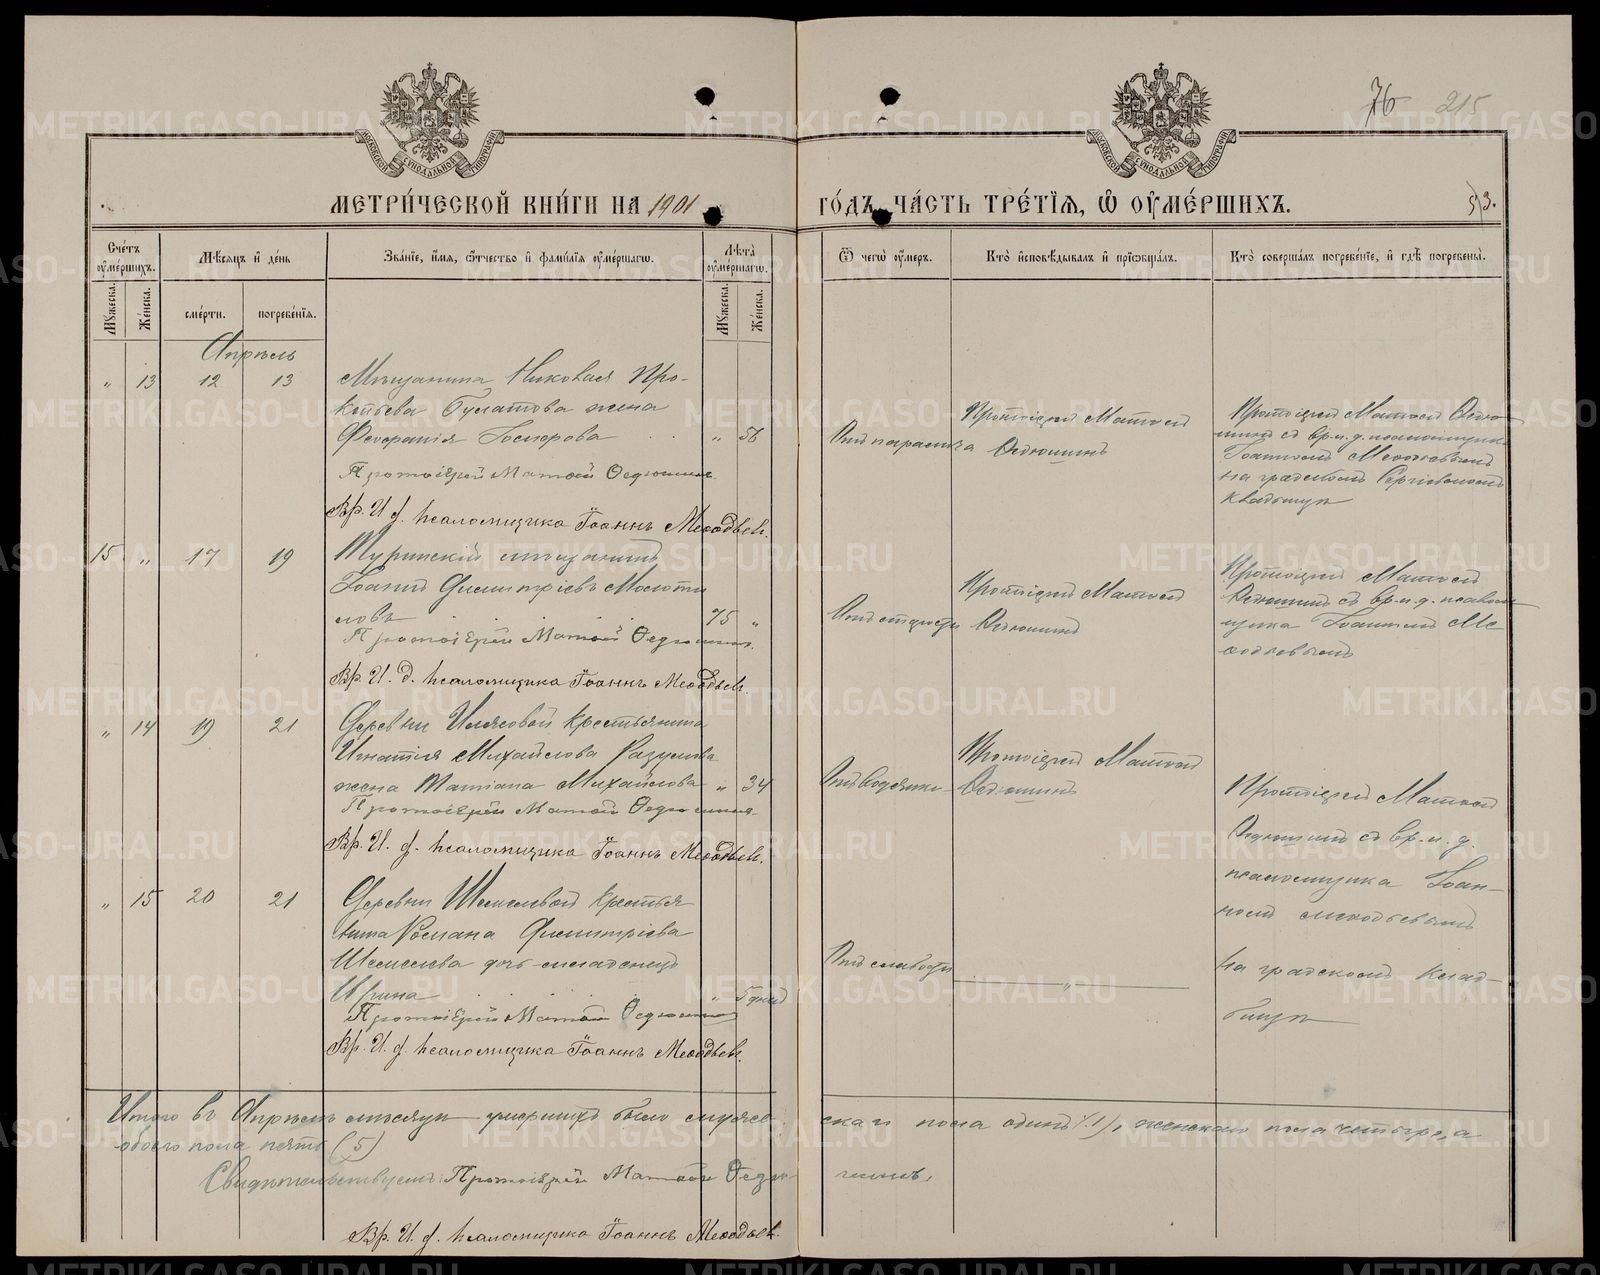 76 215
МЕТРИ́ЧЕСКОЙ КНИ́ГИ НА 1901 ГО́ДЪ, ЧА́СТЬ ТРЕ́ТІЯ, Ѡ ОУМЕ́РШИХЪ.
53.
Сче́тъ оумершихъ.
Мѣсяцъ и де́нь
Зва́ніе, имя, отчество и фами́лія оуме́ршагѡ.
Лѣта̀ оуме́ршагѡ.
Ѿ чегѡ̀ оу́меръ.
Кто̀ исповѣ́дывалъ и прїѡбща́лъ.
Кто̀ соверша́лъ погребе́ніе, и гдѣ̀ погребены̀.
Му́жеска.
Же́нска.
сме́рти.
погребе́нїя.
Му́жеска.
Же́нска.
Апрѣль
„ 13 12 13
Мѣщанина Николая Про-
копьева Булатова жена
Феофанія „ 56
Протоіерей Матѳей Ѳедюшинъ.
Вр. И. д. псаломщика Іоаннъ Меѳодьевъ.
Отъ паралича
Протоіерей Матѳей
Ѳедюшинъ
Протоіерей Матѳей Ѳедю-
шинъ съ вр. и. д. псаломщика
Іоанномъ Меѳодьевымъ
на градскомъ
кладбищѣ
15 „ 17 19
Туринскій мѣщанинъ
Іоаннъ Димитріевъ Молоти
ловъ 75 „
Протоіерей Матѳей Ѳедюшинъ.
Вр. И. д. псаломщика Іоаннъ Меѳодьевъ.
Отъ старости
Протоіерей Матѳей
Ѳедюшинъ
Протоіерей Матѳей
Ѳедюшинъ съ вр. и. д. псалом
щика Іоанномъ Ме
ѳодьевымъ
„ 14 19 21
Деревни Илясовой крестьянина
Игнатія Михайлова Разумова
жена Татіана Михайлова „ 34
Протоіерей Матѳей Ѳедюшинъ.
Вр. И. д. псаломщика Іоаннъ Меѳодьевъ.
Отъ водянки
Протоіерей Матѳей
Ѳедюшинъ
Протоіерей Матѳей
Ѳедюшинъ съ вр. и. д.
псаломщика Іоан-
номъ Меѳодьевымъ
на градскомъ клад-
бищѣ
„ 15 20 21
Деревни Шемелевой крестья
нина Романа Димитріева
Шемелева дочь младенецъ
Ирина „ 5 дней
Протоіерей Матѳей Ѳедюшинъ
Вр. И. д. псаломщика Іоаннъ Меѳодьевъ.
Отъ слабости
„
Итого въ Апрѣлѣ мѣсяцѣ умершихъ было мужес-
каго пола одинъ (1), женскаго пола четыре, а
обоего пола пять (5)
Свидѣтельствуемъ: Протоіерей Матѳей Ѳедю-
шинъ.
Вр. И. д. псаломщика Іоаннъ Меѳодьевъ.
METRIKI.GASO-URAL.RU